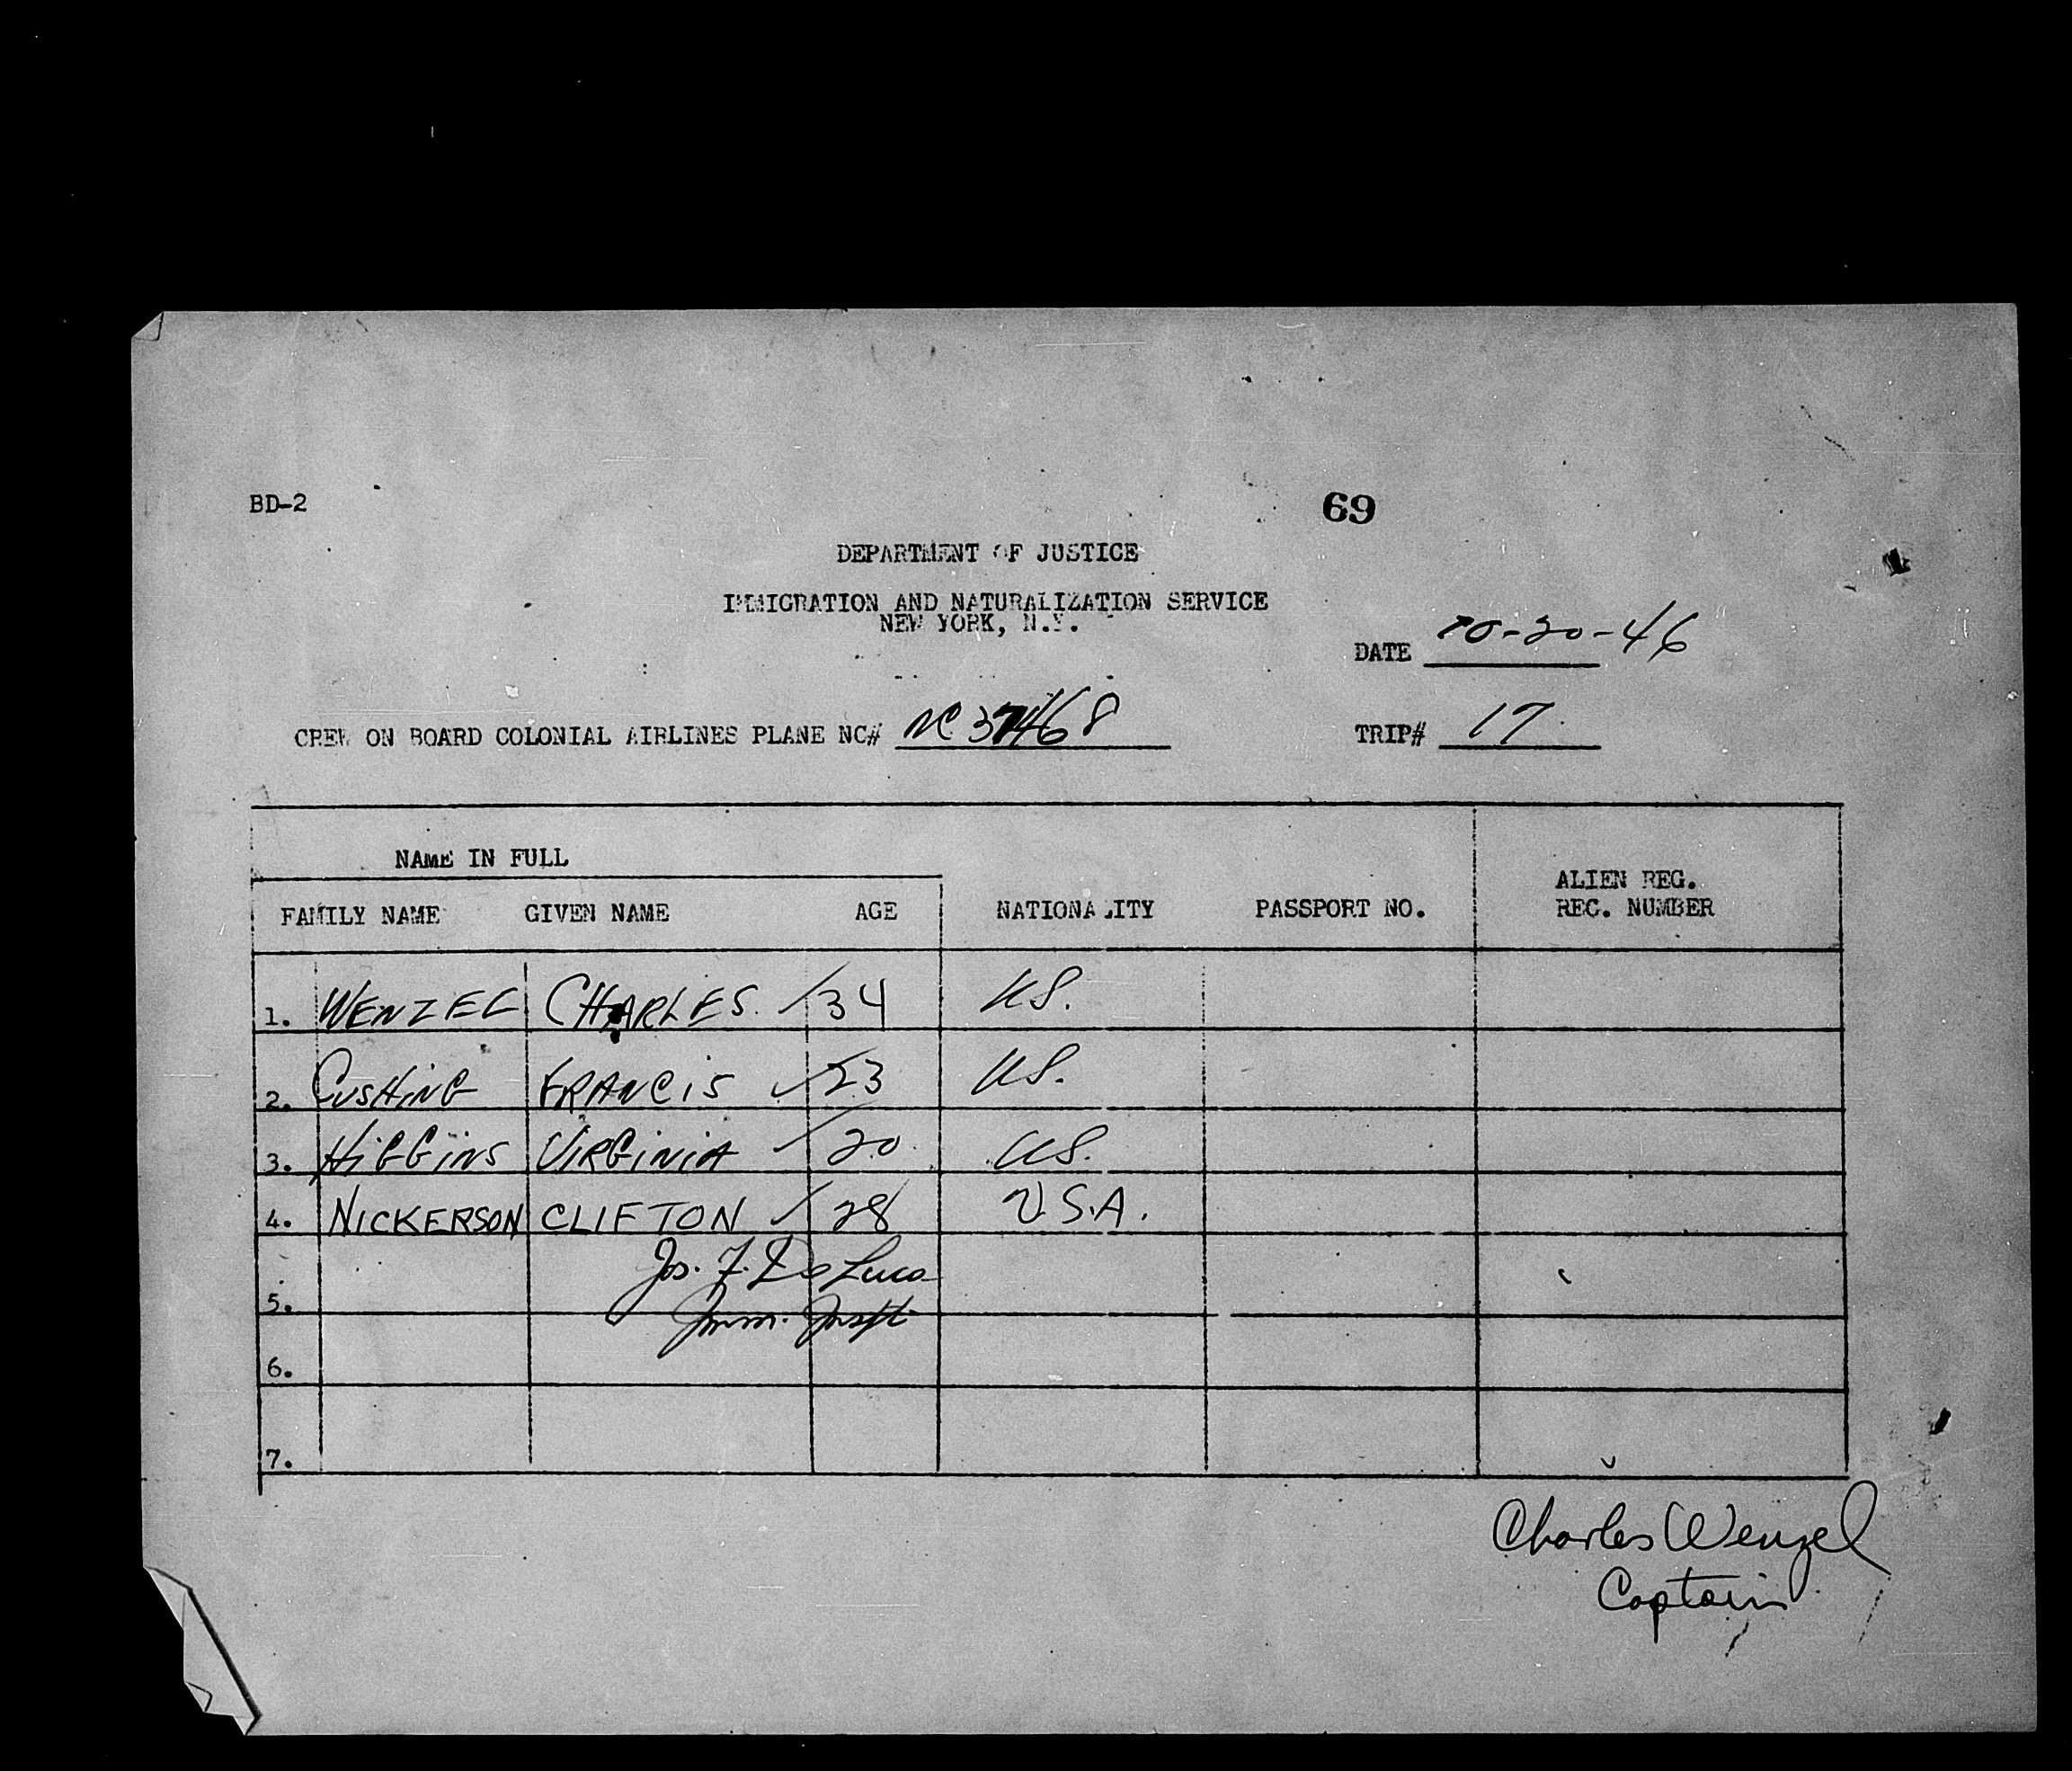 BD-2
69
DEPARTMENT OF JUSTICE
IMMIGRATION AND NATURALIZATION SERVICE
NEW YORK, N.Y.
DATE 10-20-46
CREW ON BOARD COLONIAL AIRLINES PLANE NC# NC 37468
TRIP# 17
NAME IN FULL
FAMILY NAME GIVEN NAME AGE NATIONALITY PASSPORT NO. ALIEN REG. REC. NUMBER
1. WENZEL CHARLES. 34 US.
2. CUSHING FRANCIS 23 US.
3. HIGGINS VIRGINIA 20 US.
4. NICKERSON CLIFTON 28 U.S.A.
Jos. F. De Luca
5.
Imm. Inspt.
6.
7.
Charles Wenzel
Captain